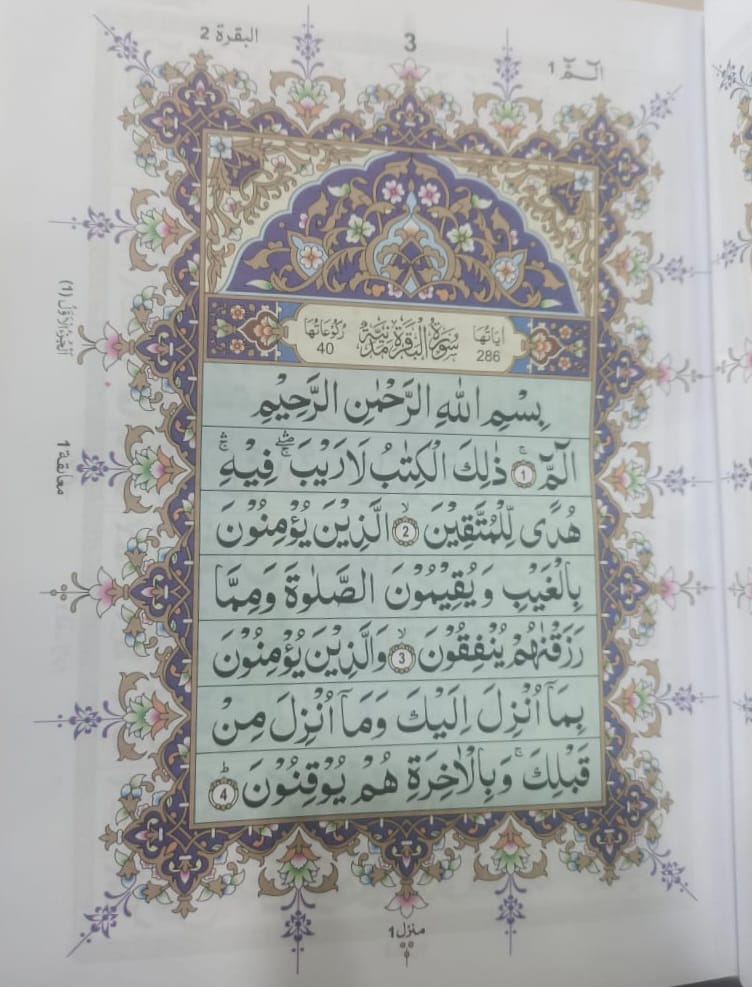 البقرة 2
3
الٓمّٓ 1
اٰيَاتُهَا 286
سُوْرَةُ الْبَقَرَةِ مَدَنِيَّةٌ
رُكُوْعَاتُهَا 40
بِسْمِ اللّٰهِ الرَّحْمٰنِ الرَّحِيْمِ
الٓمّٓ ۚ ① ذٰلِكَ الْكِتٰبُ لَا رَيْبَ ۛۖۚ فِيْهِ ۛۚ
هُدًى لِّلْمُتَّقِيْنَ ۙ ② الَّذِيْنَ يُؤْمِنُوْنَ
بِالْغَيْبِ وَيُقِيْمُوْنَ الصَّلٰوةَ وَمِمَّا
رَزَقْنٰهُمْ يُنْفِقُوْنَ ۙ ③ وَالَّذِيْنَ يُؤْمِنُوْنَ
بِمَآ اُنْزِلَ اِلَيْكَ وَمَآ اُنْزِلَ مِنْ
قَبْلِكَ ۚ وَبِالْاٰخِرَةِ هُمْ يُوْقِنُوْنَ ؕ ④
اَلْجُزْءُ الْاَوَّلُ (1)
معانقة 1
منزل 1